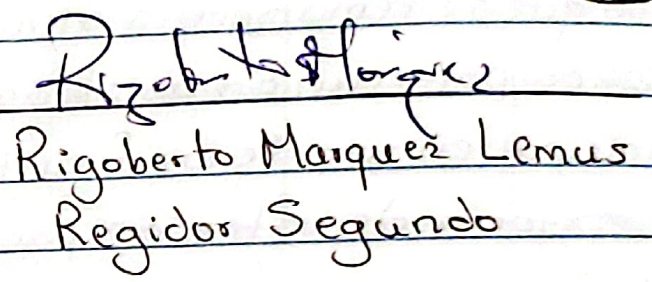 Rigoberto Marquez
Rigoberto Marquez Lemus
Regidor Segundo